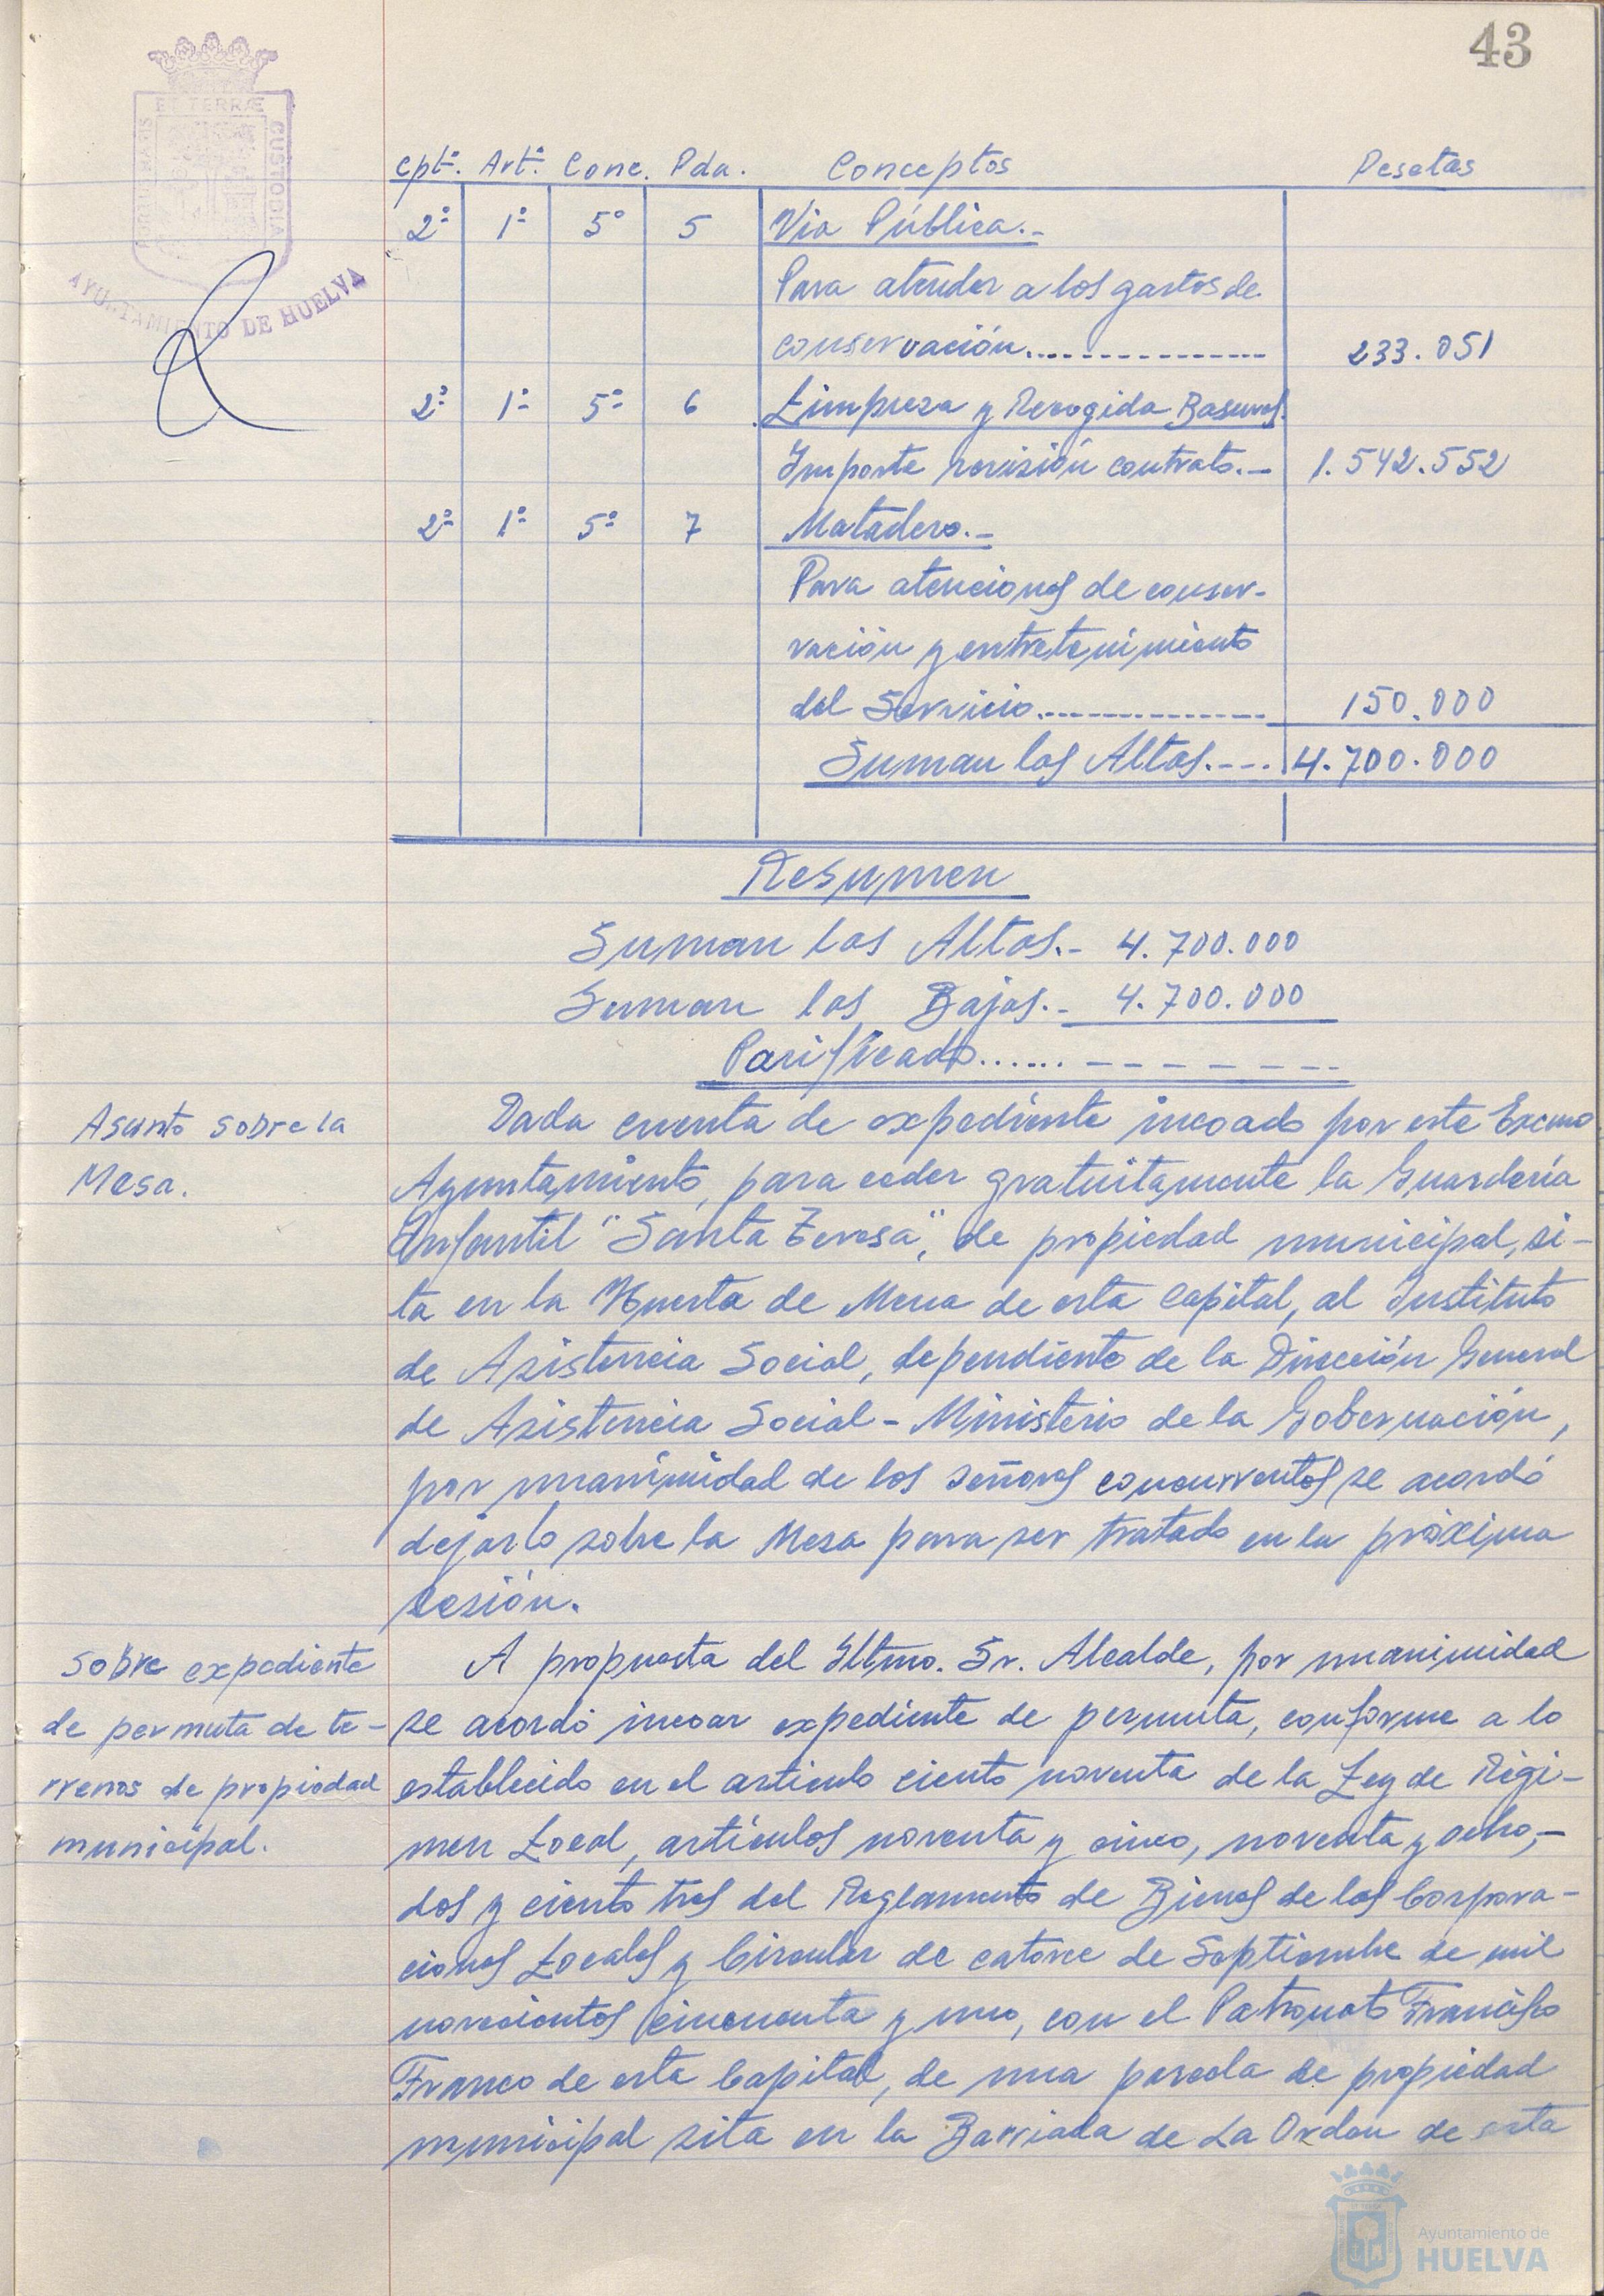 43
ET TERRÆ
PORTUS MARIS
CUSTODIA
AYUNTAMIENTO DE HUELVA
Cptº. Artº. Conc. Pda. Conceptos Pesetas
2º 1º 5º 5 Via Pública.-
Para atender a los gastos de
conservación............... 233.051
2º 1º 5º 6 Limpieza y Recogida Basuras.
Importe revisión contrato.- 1.542.552
2º 1º 5º 7 Matadero.-
Para atenciones de conser-
vación y entretenimiento
del Servicio............... 150.000
Suman las Altas.--- 4.700.000
Resumen
Suman las Altas.- 4.700.000
Suman las Bajas.- 4.700.000
Parificado...... - - - - - - -
Asunto sobre la
Mesa.
Dada cuenta de expediente incoado por este Excmo.
Ayuntamiento, para ceder gratuitamente la Guardería
Infantil "Santa Teresa", de propiedad municipal, si-
ta en la Huerta de Mena de esta Capital, al Instituto
de Asistencia Social, dependiente de la Dirección General
de Asistencia Social - Ministerio de la Gobernación,
por unanimidad de los señores concurrentes se acordó
dejarlo sobre la Mesa para ser tratado en la próxima
sesión.
Sobre expediente
de permuta de te-
rrenos de propiedad
municipal.
A propuesta del Iltmo. Sr. Alcalde, por unanimidad
se acordó incoar expediente de permuta, conforme a lo
establecido en el articulo ciento noventa de la Ley de Régi-
men Local, artículos noventa y cinco, noventa y ocho,-
dos y ciento tres del Reglamento de Bienes de las Corpora-
ciones Locales y Circular de catorce de Septiembre de mil
novecientos cincuenta y uno, con el Patronato Francisco
Franco de esta Capital, de una parcela de propiedad
municipal sita en la Barriada de La Orden de esta
Ayuntamiento de
HUELVA